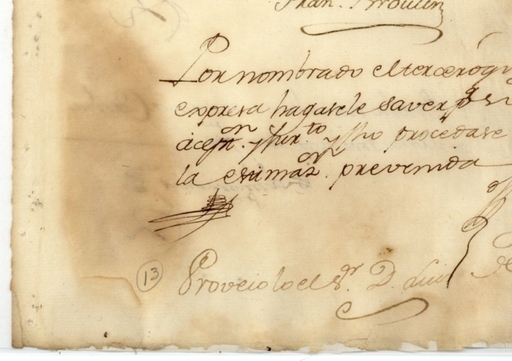 Por nombrado el tercero q
expresa hagasele saver p.ª s
acep.on y jur.to y fho procedase
la estimaz.on prevenida
13
Proveio lo el s.r D. Luis